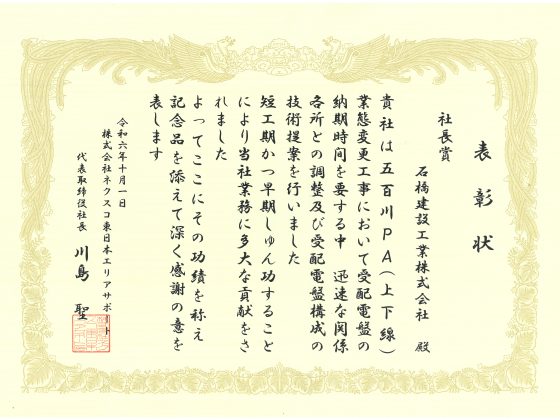 表彰状
社長賞
石橋建設工業株式会社 殿
貴社は五百川PA(上下線)
業態変更工事において受配電盤の
納期時間を要する中 迅速な関係
各所との調整及び受配電盤構成の
技術提案を行いました
短工期かつ早期しゅん功すること
により当社業務に多大な貢献をさ
れました
よってここにその功績を称え
記念品を添えて深く感謝の意を
表します
令和六年十月一日
株式会社ネクスコ東日本エリアサポート
代表取締役社長 川島 聖